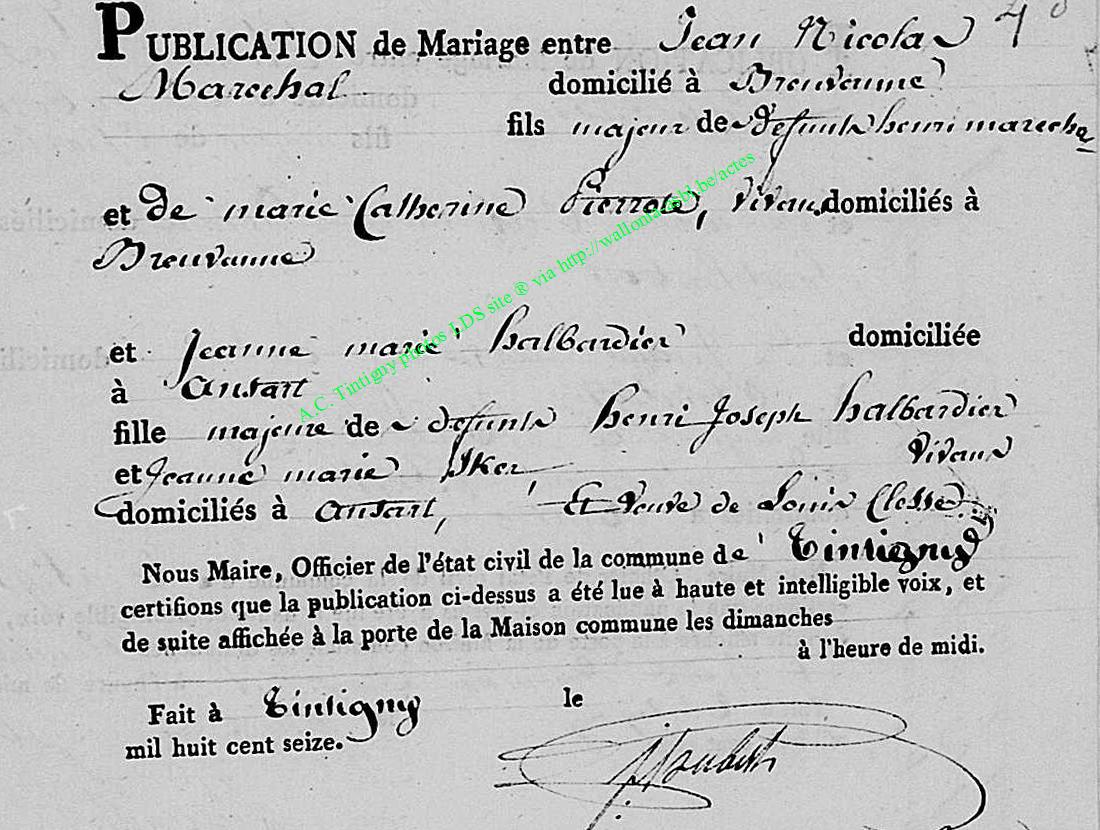 PUBLICATION de Mariage entre Jean Nicolas 4°
Marechal domicilié à Breuvanne
fils majeur de defunts henri marechal
et de marie Catherine Pierrote, Vivans domiciliés à
Breuvanne
et Jeanne marie halbardier domiciliée
à ansart
fille majeure de defunts henri Joseph halbardier
et Jeanne marie Vivans
domiciliés à ansart, Et Veuve de Louis Closse
Nous Maire, Officier de l'état civil de la commune de Tintigny
certifions que la publication ci-dessus a été lue à haute et intelligible voix, et
de suite affichée à la porte de la Maison commune les dimanches
à l'heure de midi.
Fait à Tintigny le
mil huit cent seize.
A.C. Tintigny photos LDS site ® via http://wallonia.asbl.be/actes